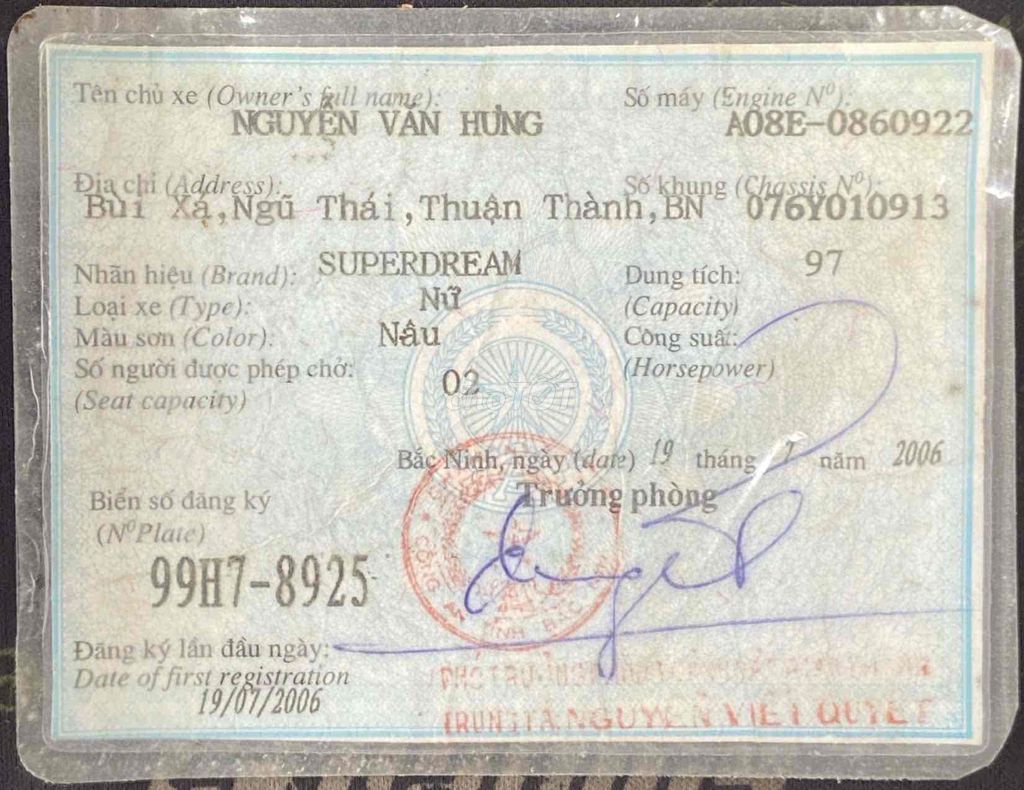 Tên chủ xe (Owner's full name):
NGUYỄN VĂN HƯNG
Số máy (Engine Nº):
A08E-0860922
Địa chỉ (Address):
Bùi Xá,Ngũ Thái,Thuận Thành,BN
Số khung (Chassis Nº):
076Y010913
Nhãn hiệu (Brand): SUPERDREAM
Loại xe (Type): Nữ
Màu sơn (Color): Nâu
Số người được phép chở: 02
(Seat capacity)
Dung tích: 97
(Capacity)
Công suất:
(Horsepower)
Bắc Ninh, ngày (date) 19 tháng 7 năm 2006
Trưởng phòng
Biển số đăng ký
(NºPlate)
99H7-8925
Đăng ký lần đầu ngày:
Date of first registration
19/07/2006
TRUNG TÁ NGUYỄN VIẾT QUYẾT